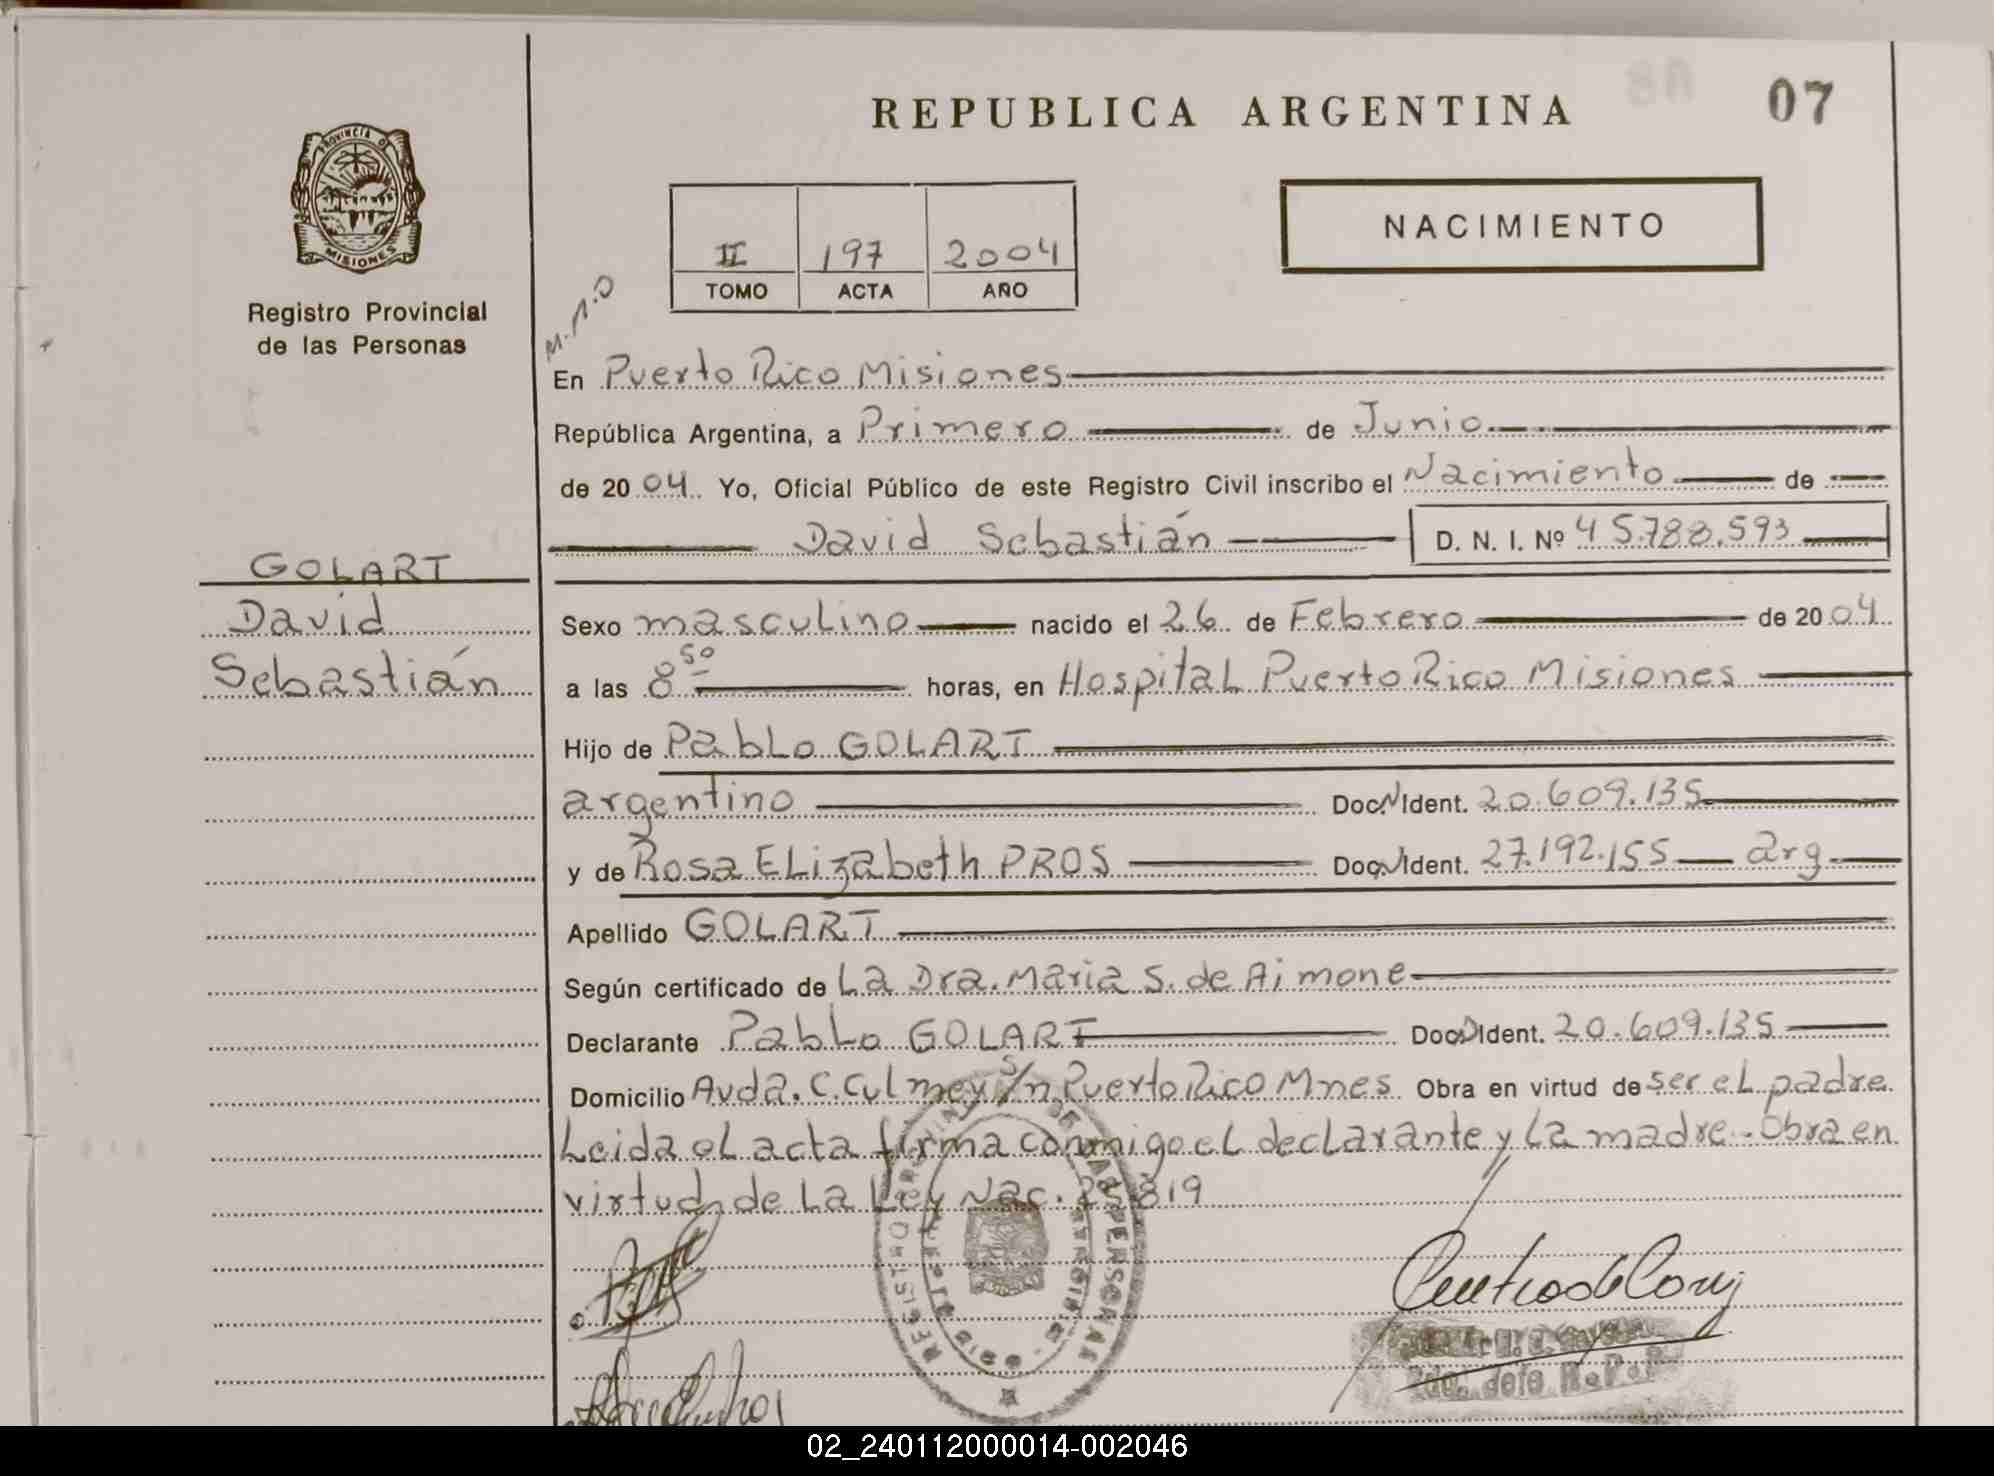 REPUBLICA ARGENTINA
07
PROVINCIA DE
MISIONES
Registro Provincial
de las Personas
NACIMIENTO
II 197 2004
TOMO ACTA AÑO
M.M.O
En Puerto Rico Misiones
República Argentina, a Primero de Junio
de 2004. Yo, Oficial Público de este Registro Civil inscribo el Nacimiento de
David Sebastián D. N. I. Nº 45.788.593
GOLART
David
Sebastián
Sexo masculino nacido el 26 de Febrero de 2004
a las 8 50 horas, en Hospital Puerto Rico Misiones
Hijo de Pablo GOLART
argentino Doc. N Ident. 20.609.135
y de Rosa ELizabeth PROS Doc. N Ident. 27.192.155 arg
Apellido GOLART
Según certificado de La Dra. Maria S. de Aimone
Declarante Pablo GOLART Doc. N Ident. 20.609.135
Domicilio Avda. C. Culmey S/n Puerto Rico Mnes Obra en virtud de ser el padre
Leida el acta firma conmigo el declarante y la madre.- Obra en
virtud de La Ley Nac. 25819
REGISTRO PROVINCIAL DE LAS PERSONAS
02_240112000014-002046